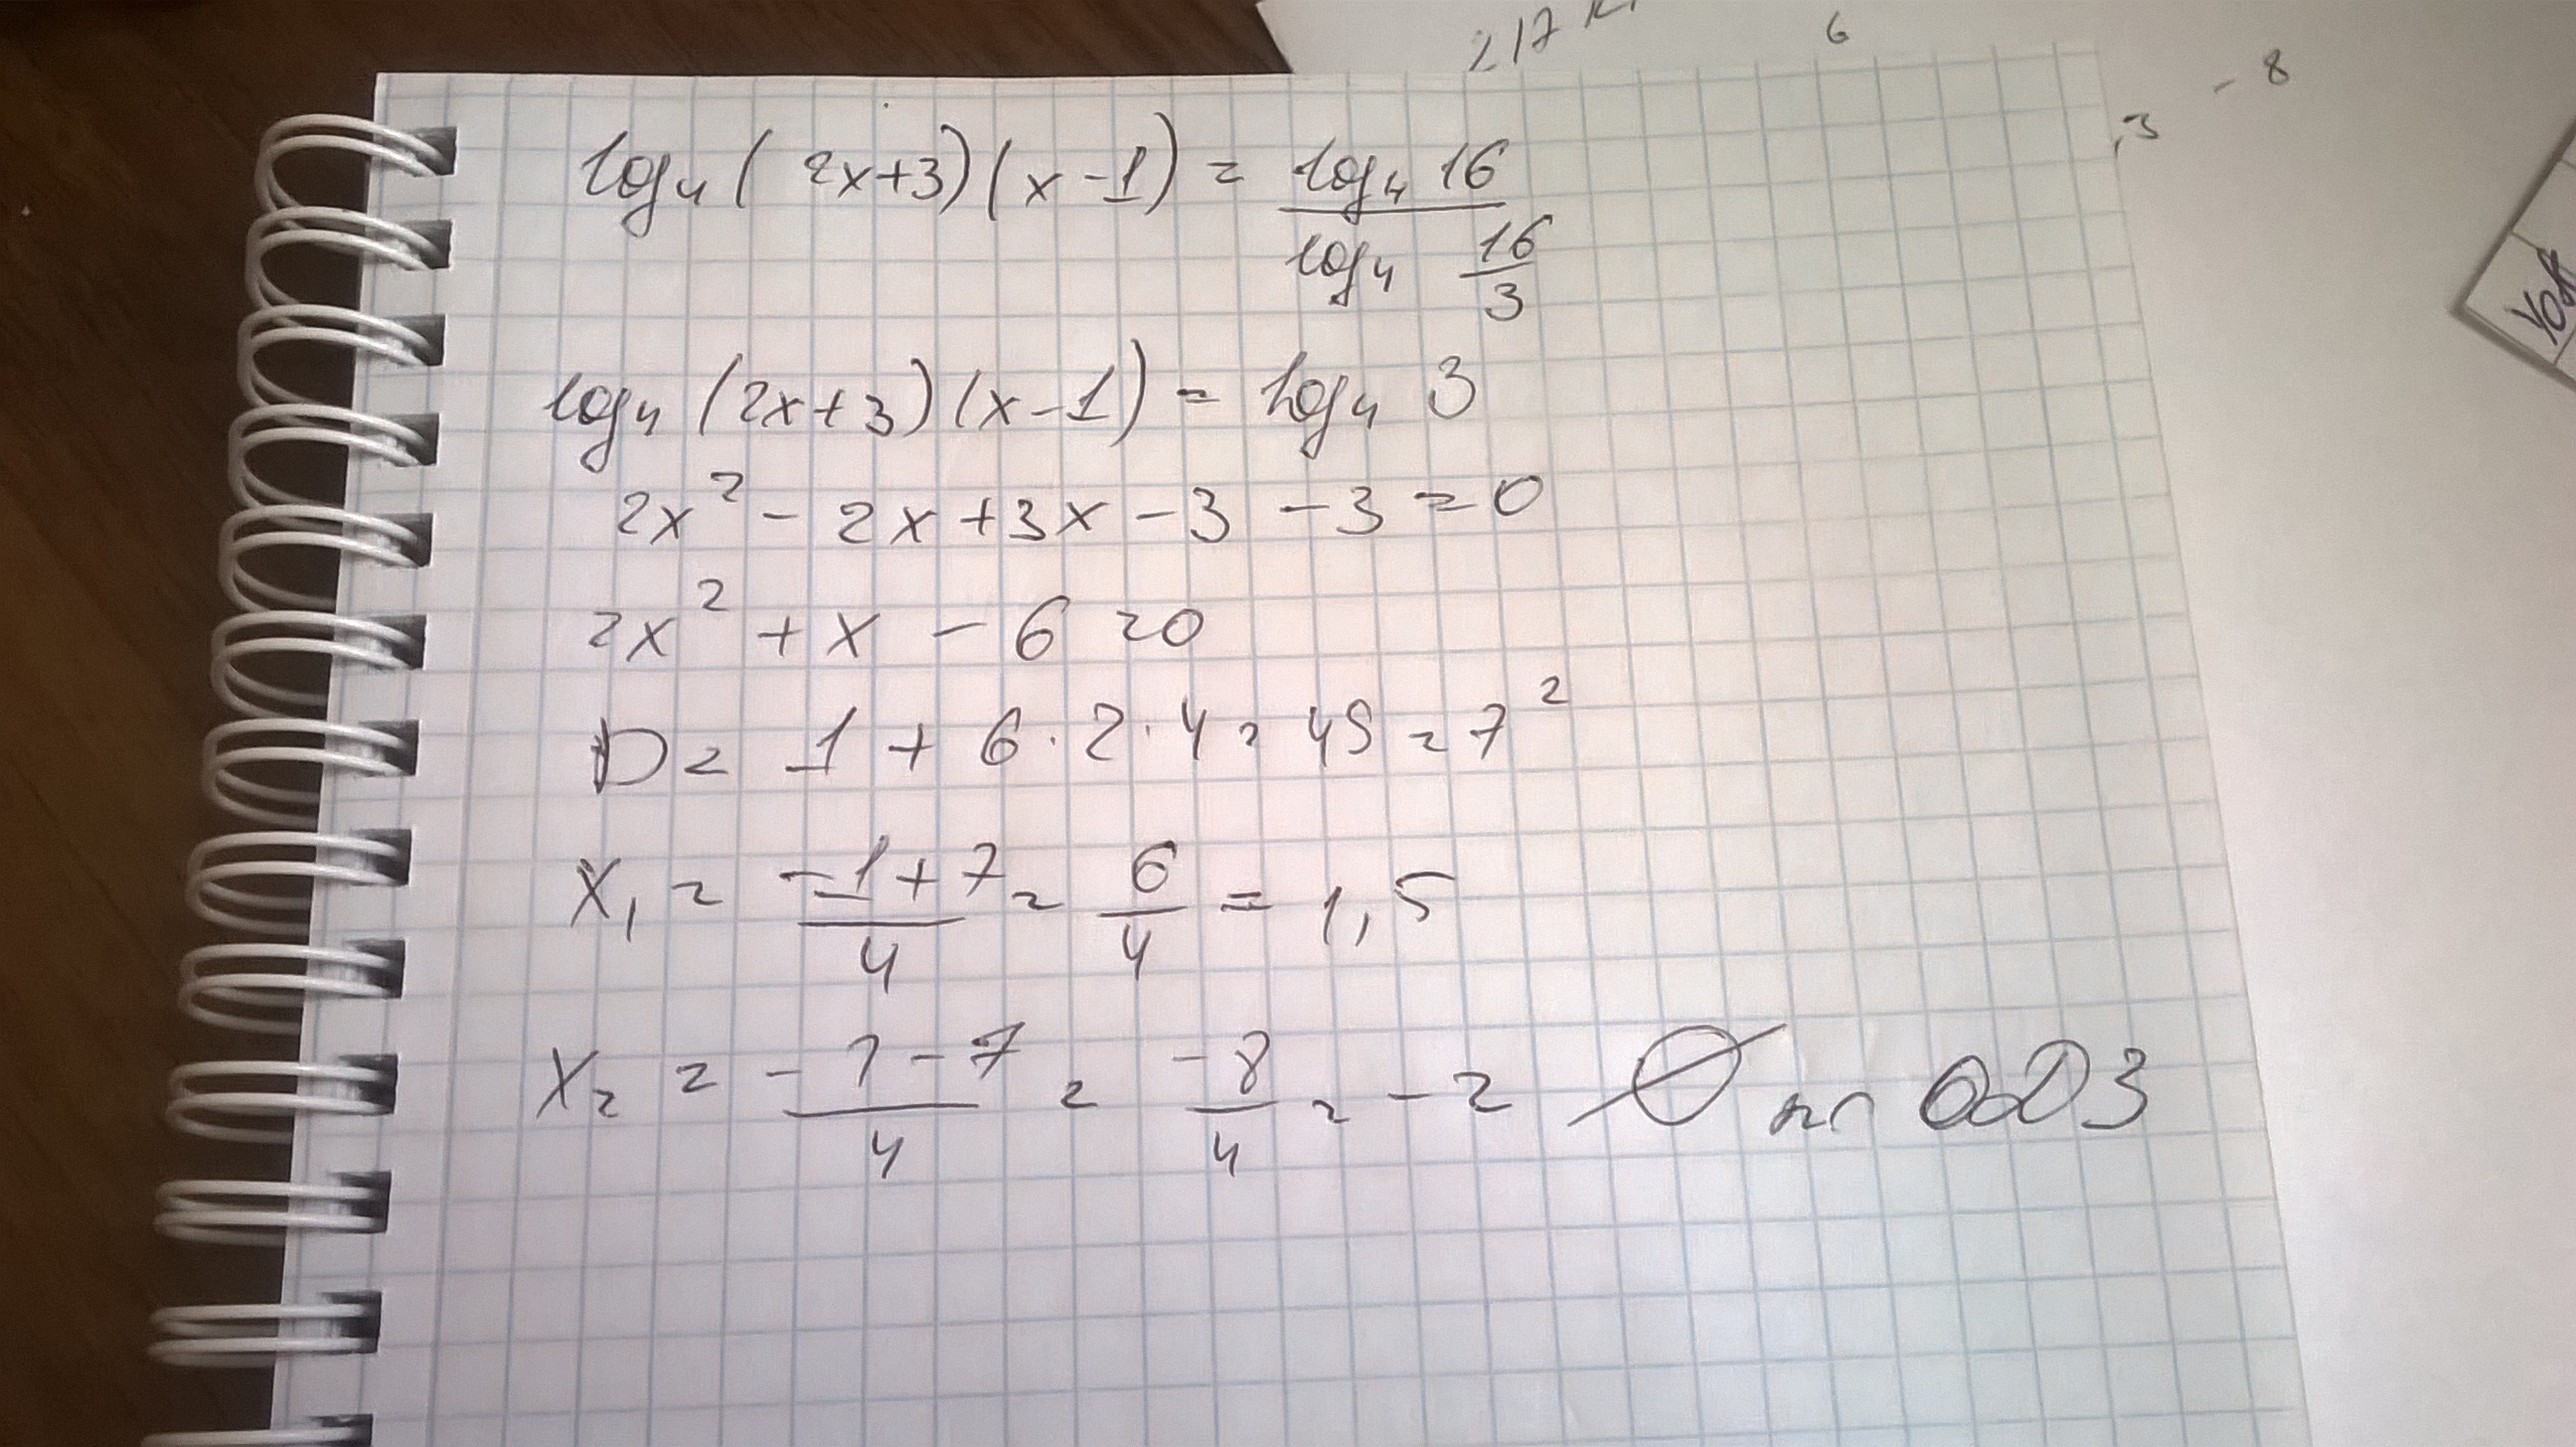 217
6
- 8
,3
log₄ (2x+3)(x-1) = log₄ 16 / log₄ 16/3
log₄ (2x+3)(x-1) = log₄ 3
2x² - 2x + 3x - 3 - 3 = 0
2x² + x - 6 = 0
D = 1 + 6 · 2 · 4 = 49 = 7²
x₁ = -1+7 / 4 = 6/4 = 1,5
x₂ = -1-7 / 4 = -8/4 = -2 ∅ по ОДЗ